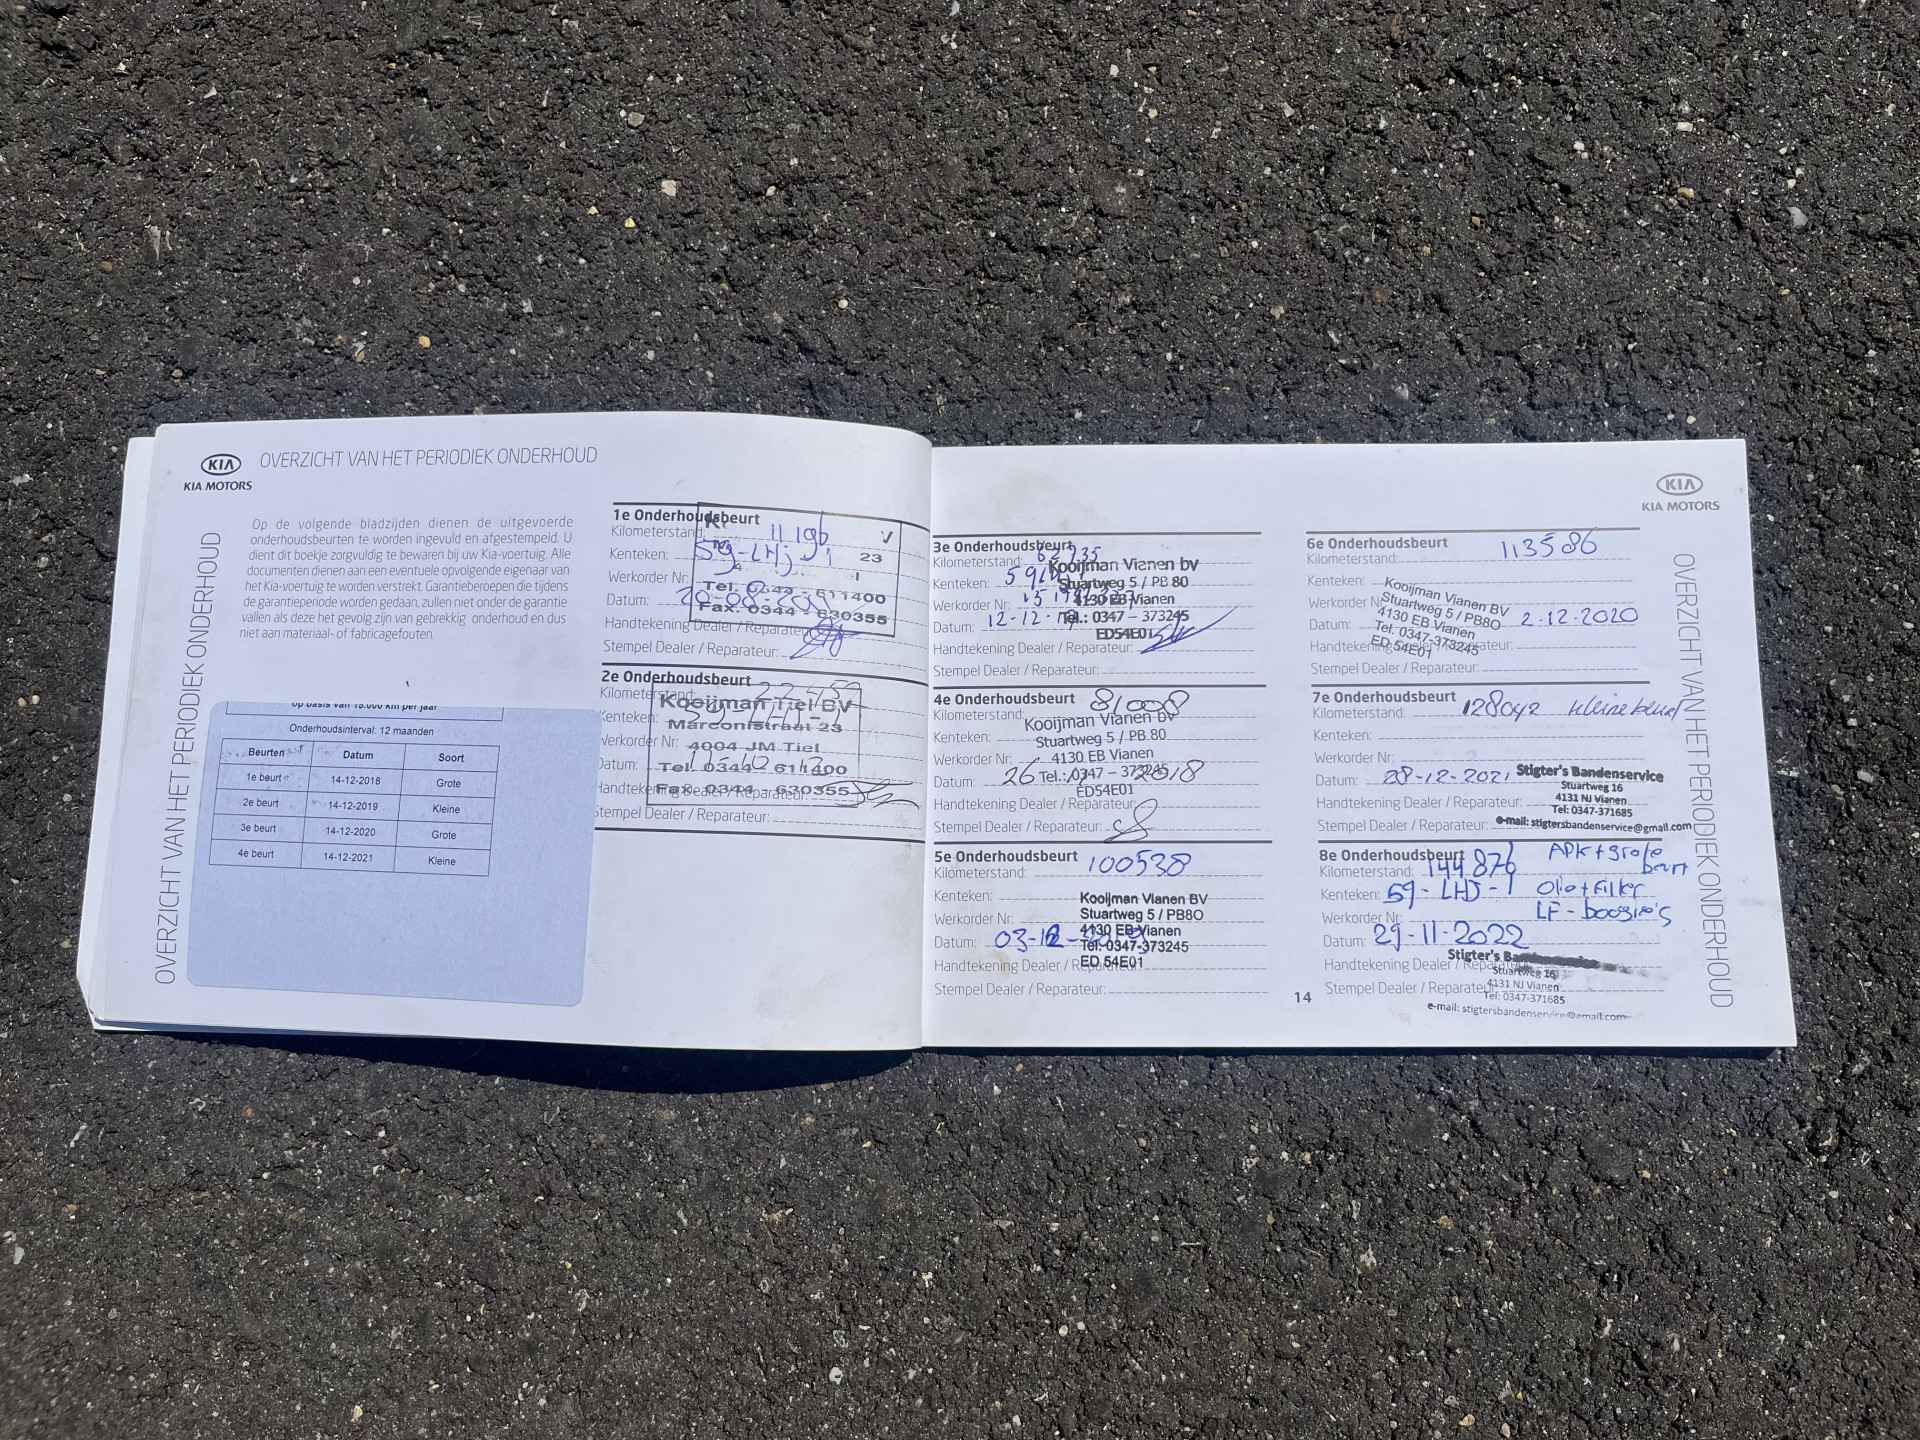 KIA
KIA MOTORS
OVERZICHT VAN HET PERIODIEK ONDERHOUD
OVERZICHT VAN HET PERIODIEK ONDERHOUD
Op de volgende bladzijden dienen de uitgevoerde
onderhoudsbeurten te worden ingevuld en afgestempeld. U
dient dit boekje zorgvuldig te bewaren bij uw Kia-voertuig. Alle
documenten dienen aan een eventuele opvolgende eigenaar van
het Kia-voertuig te worden verstrekt. Garantieberoepen die tijdens
de garantieperiode worden gedaan, zullen niet onder de garantie
vallen als deze het gevolg zijn van gebrekkig onderhoud en dus
niet aan materiaal- of fabricagefouten.
op basis van 15.000 km per jaar
Onderhoudsinterval: 12 maanden
Beurten Datum Soort
1e beurt 14-12-2018 Grote
2e beurt 14-12-2019 Kleine
3e beurt 14-12-2020 Grote
4e beurt 14-12-2021 Kleine
1e Onderhoudsbeurt
Kilometerstand: 11196
Kenteken: 59-LHJ-1
23
Werkorder Nr:
Tel. 0344 - 611400
Datum:
Fax. 0344 - 630355
Handtekening Dealer / Reparateur:
Stempel Dealer / Reparateur:
2e Onderhoudsbeurt
Kilometerstand:
Kooijman Tiel BV
Kenteken:
Marconistraat 23
Werkorder Nr:
4004 JM Tiel
Datum:
Tel. 0344 - 611400
Handtekening Dealer / Reparateur:
Fax. 0344 - 630355
Stempel Dealer / Reparateur:
3e Onderhoudsbeurt
Kilometerstand:
Kooijman Vianen bv
Kenteken:
Stuartweg 5 / PB 80
Werkorder Nr:
4130 EB Vianen
Datum: 12-12-
Tel.: 0347 – 373245
ED54E01
Handtekening Dealer / Reparateur:
Stempel Dealer / Reparateur:
4e Onderhoudsbeurt
Kilometerstand: 81008
Kooijman Vianen bv
Kenteken:
Stuartweg 5 / PB 80
Werkorder Nr:
4130 EB Vianen
Datum: 26 2018
Tel.: 0347 – 373245
ED54E01
Handtekening Dealer / Reparateur:
Stempel Dealer / Reparateur:
5e Onderhoudsbeurt
Kilometerstand: 100538
Kenteken:
Kooijman Vianen BV
Werkorder Nr:
Stuartweg 5 / PB80
4130 EB Vianen
Datum:
Tel. 0347-373245
ED 54E01
Handtekening Dealer / Reparateur:
Stempel Dealer / Reparateur:
KIA
KIA MOTORS
6e Onderhoudsbeurt
Kilometerstand: 113586
Kenteken:
Kooijman Vianen BV
Werkorder Nr:
Stuartweg 5 / PB80
4130 EB Vianen
Datum: 2-12-2020
Tel. 0347-373245
ED 54E01
Handtekening Dealer / Reparateur:
Stempel Dealer / Reparateur:
7e Onderhoudsbeurt
Kilometerstand: 128042 kleine beurt
Kenteken:
Werkorder Nr:
Datum: 28-12-2021
Stigter's Bandenservice
Stuartweg 16
4131 NJ Vianen
Tel: 0347-371685
e-mail: stigtersbandenservice@gmail.com
Handtekening Dealer / Reparateur:
Stempel Dealer / Reparateur:
8e Onderhoudsbeurt
APK + grote beurt
Kilometerstand: 144876
Kenteken: 59-LHJ-1 Olie+Filter
Werkorder Nr: LF - boogie's
Datum: 29-11-2022
Handtekening Dealer / Reparateur:
Stempel Dealer / Reparateur:
Stigter's
Stuartweg 16
4131 NJ Vianen
Tel: 0347-371685
e-mail: stigtersbandenservice@gmail.com
14
OVERZICHT VAN HET PERIODIEK ONDERHOUD